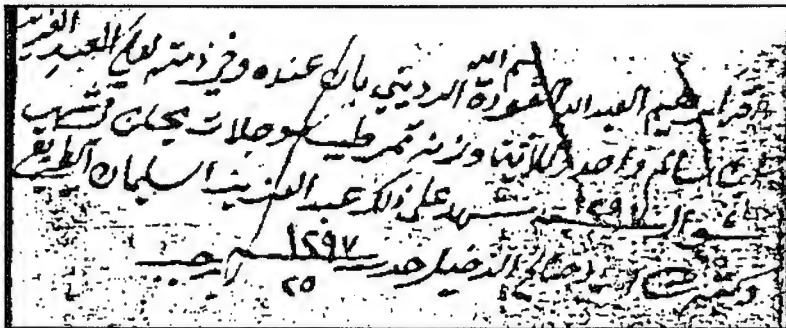 بسم الله
اقر ابراهيم العبدالله القودة الرديني بان عنده وفي ذمته لعلي العبدالعزيز
ابن سالم واحد وثلاثين وزنه تمر طيب موجلات يحلن في شهر
شوال ١٢٩٨ شهد على ذلك عبدالعزيز السليمان
وكتبه صالح الدخيل حرر ١٢٩٧
٢٥ رجب